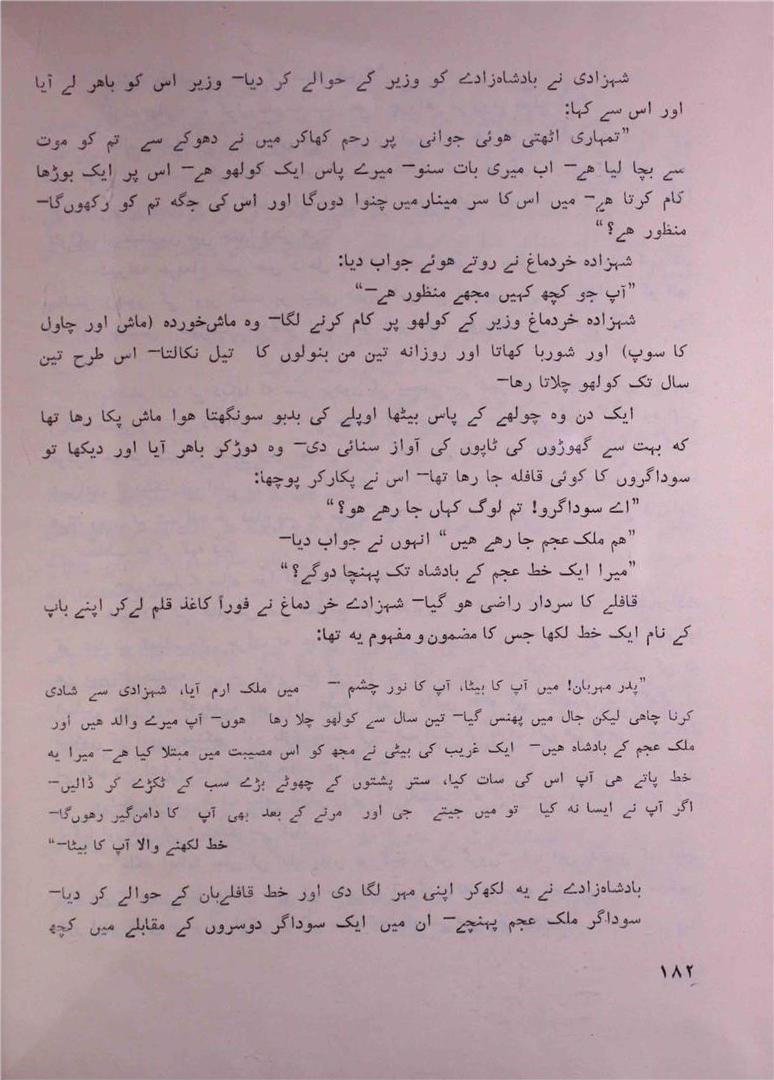 شہزادی نے بادشاہ‌زادے کو وزیر کے حوالے کر دیا— وزیر اس کو باھر لے آیا
اور اس سے کہا:
”تمہاری اٹھتی ھوئی جوانی پر رحم کھاکر میں نے دھوکے سے تم کو موت
سے بچا لیا ھے— اب میری بات سنو— میرے پاس ایک کولھو ھے— اس پر ایک بوڑھا
کام کرتا ھے— میں اس کا سر مینار میں چنوا دوں‌گا اور اس کی جگه تم کو رکھوں‌گا—
منظور ھے؟“
شہزادہ خردماغ نے روتے ھوئے جواب دیا:
”آپ جو کچھ کہیں مجھے منظور ھے—“
شہزادہ خردماغ وزیر کے کولھو پر کام کرنے لگا— وہ ماش‌خوردہ (ماش اور چاول
کا سوپ) اور شوربا کھاتا اور روزانه تین من بنولوں کا تیل نکالتا— اس طرح تین
سال تک کولھو چلاتا رھا—
ایک دن وہ چولھے کے پاس بیٹھا اوپلے کی بدبو سونگھتا ھوا ماش پکا رھا تھا
که بہت سے گھوڑوں کی ٹاپوں کی آواز سنائی دی— وہ دوڑکر باھر آیا اور دیکھا تو
سوداگروں کا کوئی قافله جا رھا تھا— اس نے پکارکر پوچھا:
”اے سوداگرو! تم لوگ کہاں جا رھے ھو؟“
”ھم ملک عجم جا رھے ھیں“ انہوں نے جواب دیا—
”میرا ایک خط عجم کے بادشاہ تک پہنچا دوگے؟“
قافلے کا سردار راضی ھو گیا— شہزادے خر دماغ نے فوراً کاغذ قلم لے‌کر اپنے باپ
کے نام ایک خط لکھا جس کا مضمون و مفہوم یه تھا:
”پدر مہربان! میں آپ کا بیٹا، آپ کا نور چشم — میں ملک ارم آیا، شہزادی سے شادی
کرنا چاھی لیکن جال میں پھنس گیا— تین سال سے کولھو چلا رھا ھوں— آپ میرے والد ھیں اور
ملک عجم کے بادشاہ ھیں— ایک غریب کی بیٹی نے مجھ کو اس مصیبت میں مبتلا کیا ھے— میرا یه
خط پاتے ھی آپ اس کی سات کیا، ستر پشتوں کے چھوٹے بڑے سب کے ٹکڑے کر ڈالیں—
اگر آپ نے ایسا نه کیا تو میں جیتے جی اور مرنے کے بعد بھی آپ کا دامن‌گیر رھوں‌گا—
خط لکھنے والا آپ کا بیٹا—“
بادشاہ‌زادے نے یه لکھ‌کر اپنی مہر لگا دی اور خط قافلے‌بان کے حوالے کر دیا—
سوداگر ملک عجم پہنچے— ان میں ایک سوداگر دوسروں کے مقابلے میں کچھ
۱۸۲